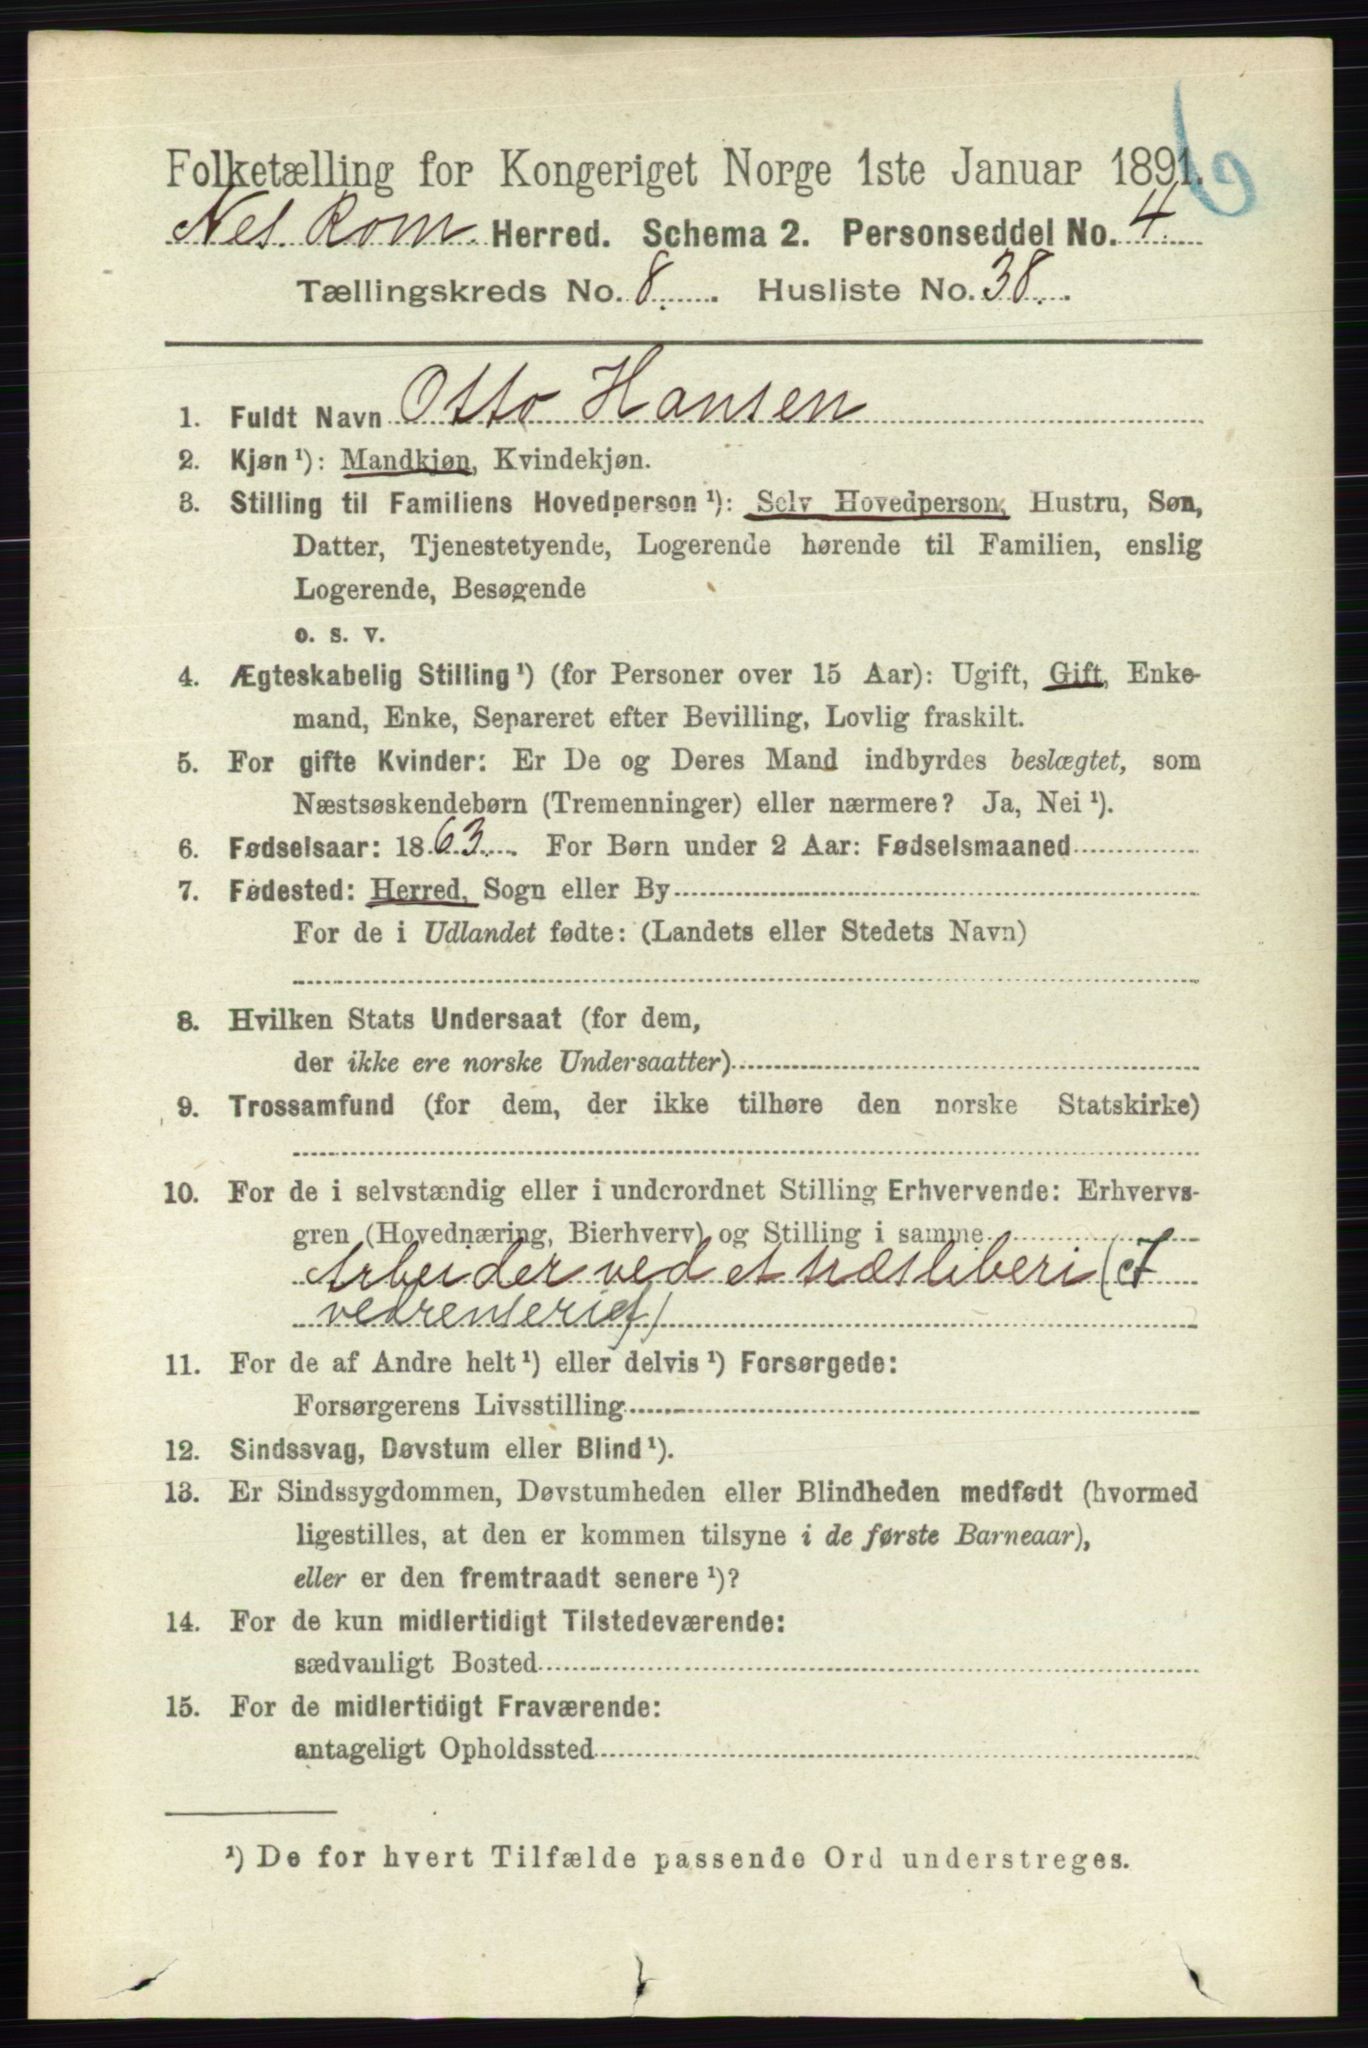 6
Folketælling for Kongeriget Norge 1ste Januar 1891.
Nes. Rom. Herred. Schema 2. Personseddel No. 4
Tællingskreds No. 8. Husliste No. 38.
1. Fuldt Navn Otto Hansen
2. Kjøn ¹): Mandkjøn, Kvindekjøn.
3. Stilling til Familiens Hovedperson ¹): Selv Hovedperson, Hustru, Søn,
Datter, Tjenestetyende, Logerende hørende til Familien, enslig
Logerende, Besøgende
o. s. v.
4. Ægteskabelig Stilling ¹) (for Personer over 15 Aar): Ugift, Gift, Enke-
mand, Enke, Separeret efter Bevilling, Lovlig fraskilt.
5. For gifte Kvinder: Er De og Deres Mand indbyrdes beslægtet, som
Næstsøskendebørn (Tremenninger) eller nærmere? Ja, Nei ¹).
6. Fødselsaar: 1863. For Børn under 2 Aar: Fødselsmaaned
7. Fødested: Herred, Sogn eller By
For de i Udlandet fødte: (Landets eller Stedets Navn)
8. Hvilken Stats Undersaat (for dem,
der ikke ere norske Undersaatter)
9. Trossamfund (for dem, der ikke tilhøre den norske Statskirke)
10. For de i selvstændig eller i underordnet Stilling Erhvervende: Erhvervs-
gren (Hovednæring, Bierhverv) og Stilling i samme
Arbeider ved et træsliberi (I
vedrenseriet)
11. For de af Andre helt ¹) eller delvis ¹) Forsørgede:
Forsørgerens Livsstilling
12. Sindssvag, Døvstum eller Blind ¹).
13. Er Sindssygdommen, Døvstumheden eller Blindheden medfødt (hvormed
ligestilles, at den er kommen tilsyne i de første Barneaar),
eller er den fremtraadt senere ¹)?
14. For de kun midlertidigt Tilstedeværende:
sædvanligt Bosted
15. For de midlertidigt Fraværende:
antageligt Opholdssted
¹) De for hvert Tilfælde passende Ord understreges.